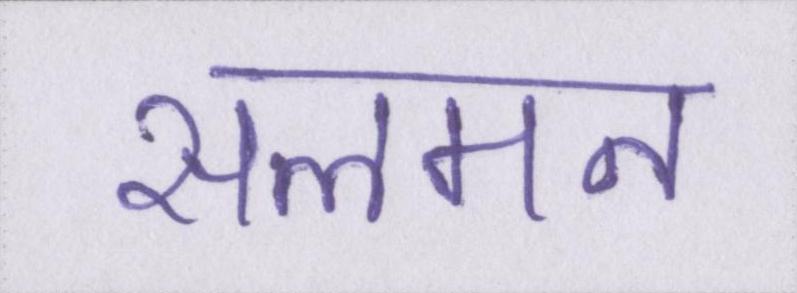 सलमन